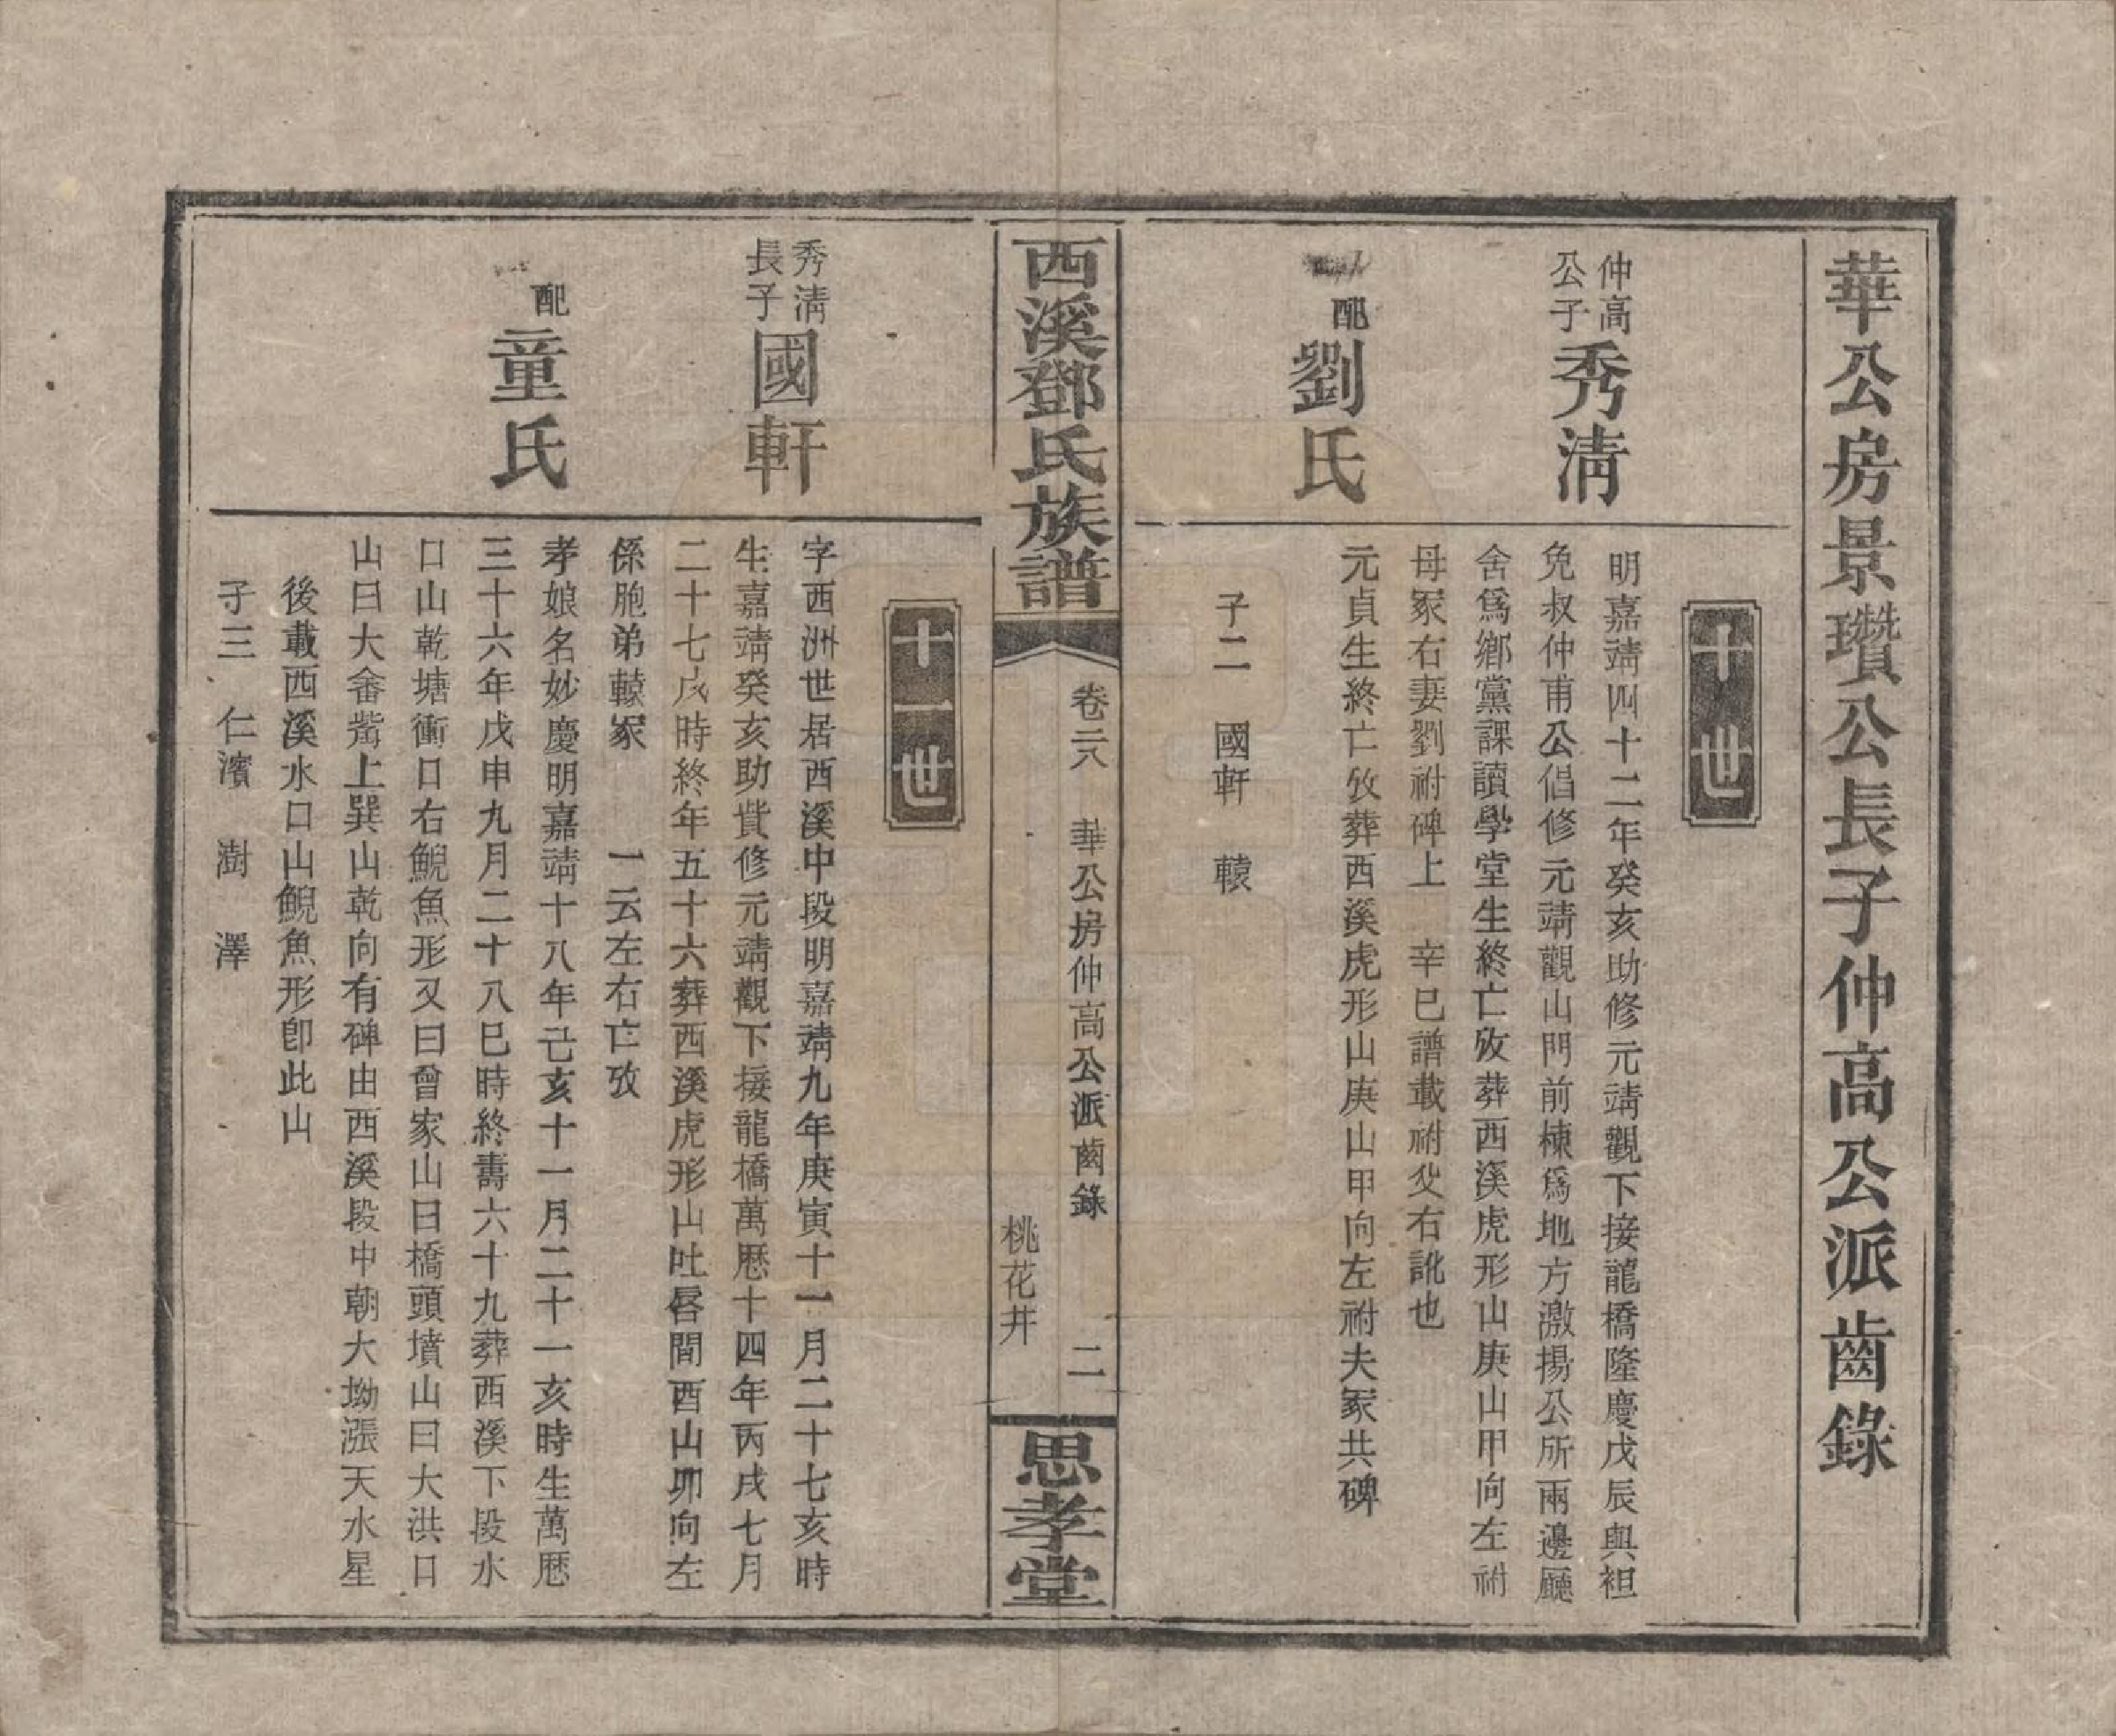 華公房景瓚公長子仲高公派齒錄
十世
仲高
公子
秀淸
明嘉靖四十二年癸亥助修元靖觀下接龍橋隆慶戊辰與袒
免叔仲甫公倡修元靖觀山門前棟爲地方激揚公所兩邊廳
舍爲鄕黨課讀學堂生終亡攷葬西溪虎形山庚山甲向左祔
母冢右妻劉祔碑上　辛巳譜載祔父右訛也
配
劉氏
元貞生終亡攷葬西溪虎形山庚山甲向左祔夫冢共碑
子二　國軒　轅
西溪鄧氏族譜
卷二八　華公房仲高公派齒錄　二
桃花井
思孝堂
十一世
秀淸
長子
國軒
字西洲世居西溪中段明嘉靖九年庚寅十一月二十七亥時
生嘉靖癸亥助貲修元靖觀下接龍橋萬厯十四年丙戌七月
二十七戌時終年五十六葬西溪虎形山吐唇間酉山卯向左
係胞弟轅冢　　一云左右亡攷
配
童氏
孝娘名妙慶明嘉靖十八年己亥十一月二十一亥時生萬厯
三十六年戊申九月二十八巳時終壽六十九葬西溪下段水
口山乾塘衝口右鯢魚形又曰曾家山曰橋頭墳山曰大洪口
山曰大畬嘴上巽山乾向有碑由西溪段中朝大坳漲天水星
後載西溪水口山鯢魚形卽此山
子三　仁濱　澍　澤